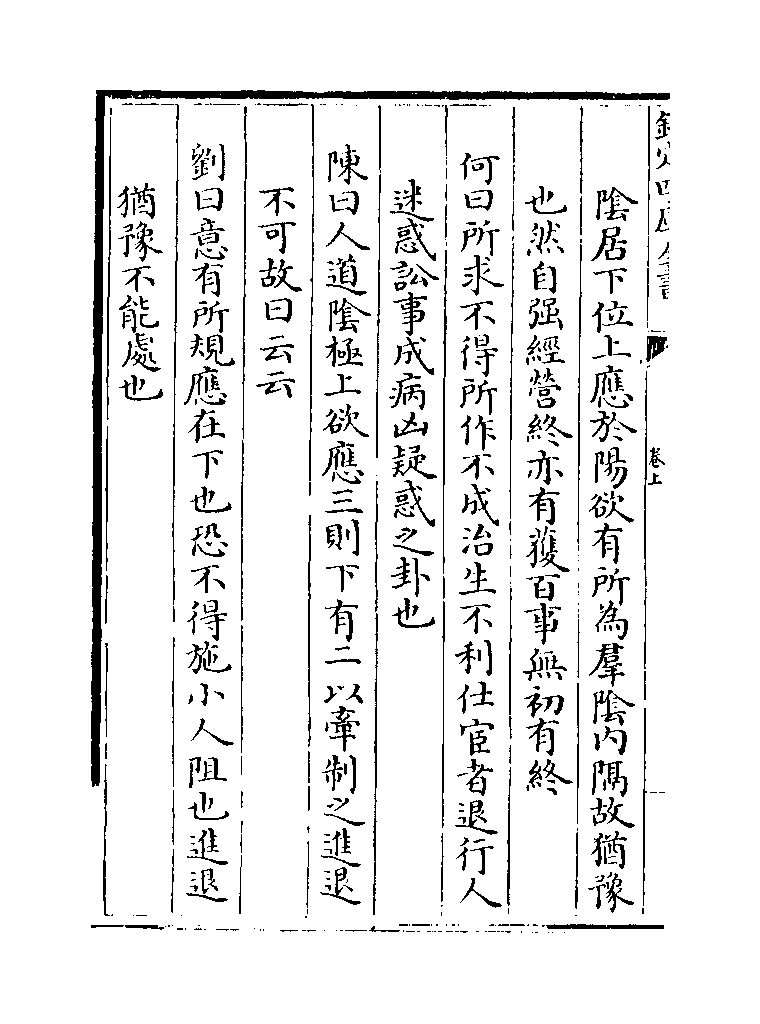 欽定四庫全書
卷上
陰居下位上應於陽欲有所為羣陰内隔故猶豫
也然自强經營終亦有獲百事無初有終
何曰所求不得所作不成治生不利仕宦者退行人
迷惑訟事成病凶疑惑之卦也
陳曰人道陰極上欲應三則下有二以牽制之進退
不可故曰云云
劉曰意有所規應在下也恐不得施小人阻也進退
猶豫不能處也